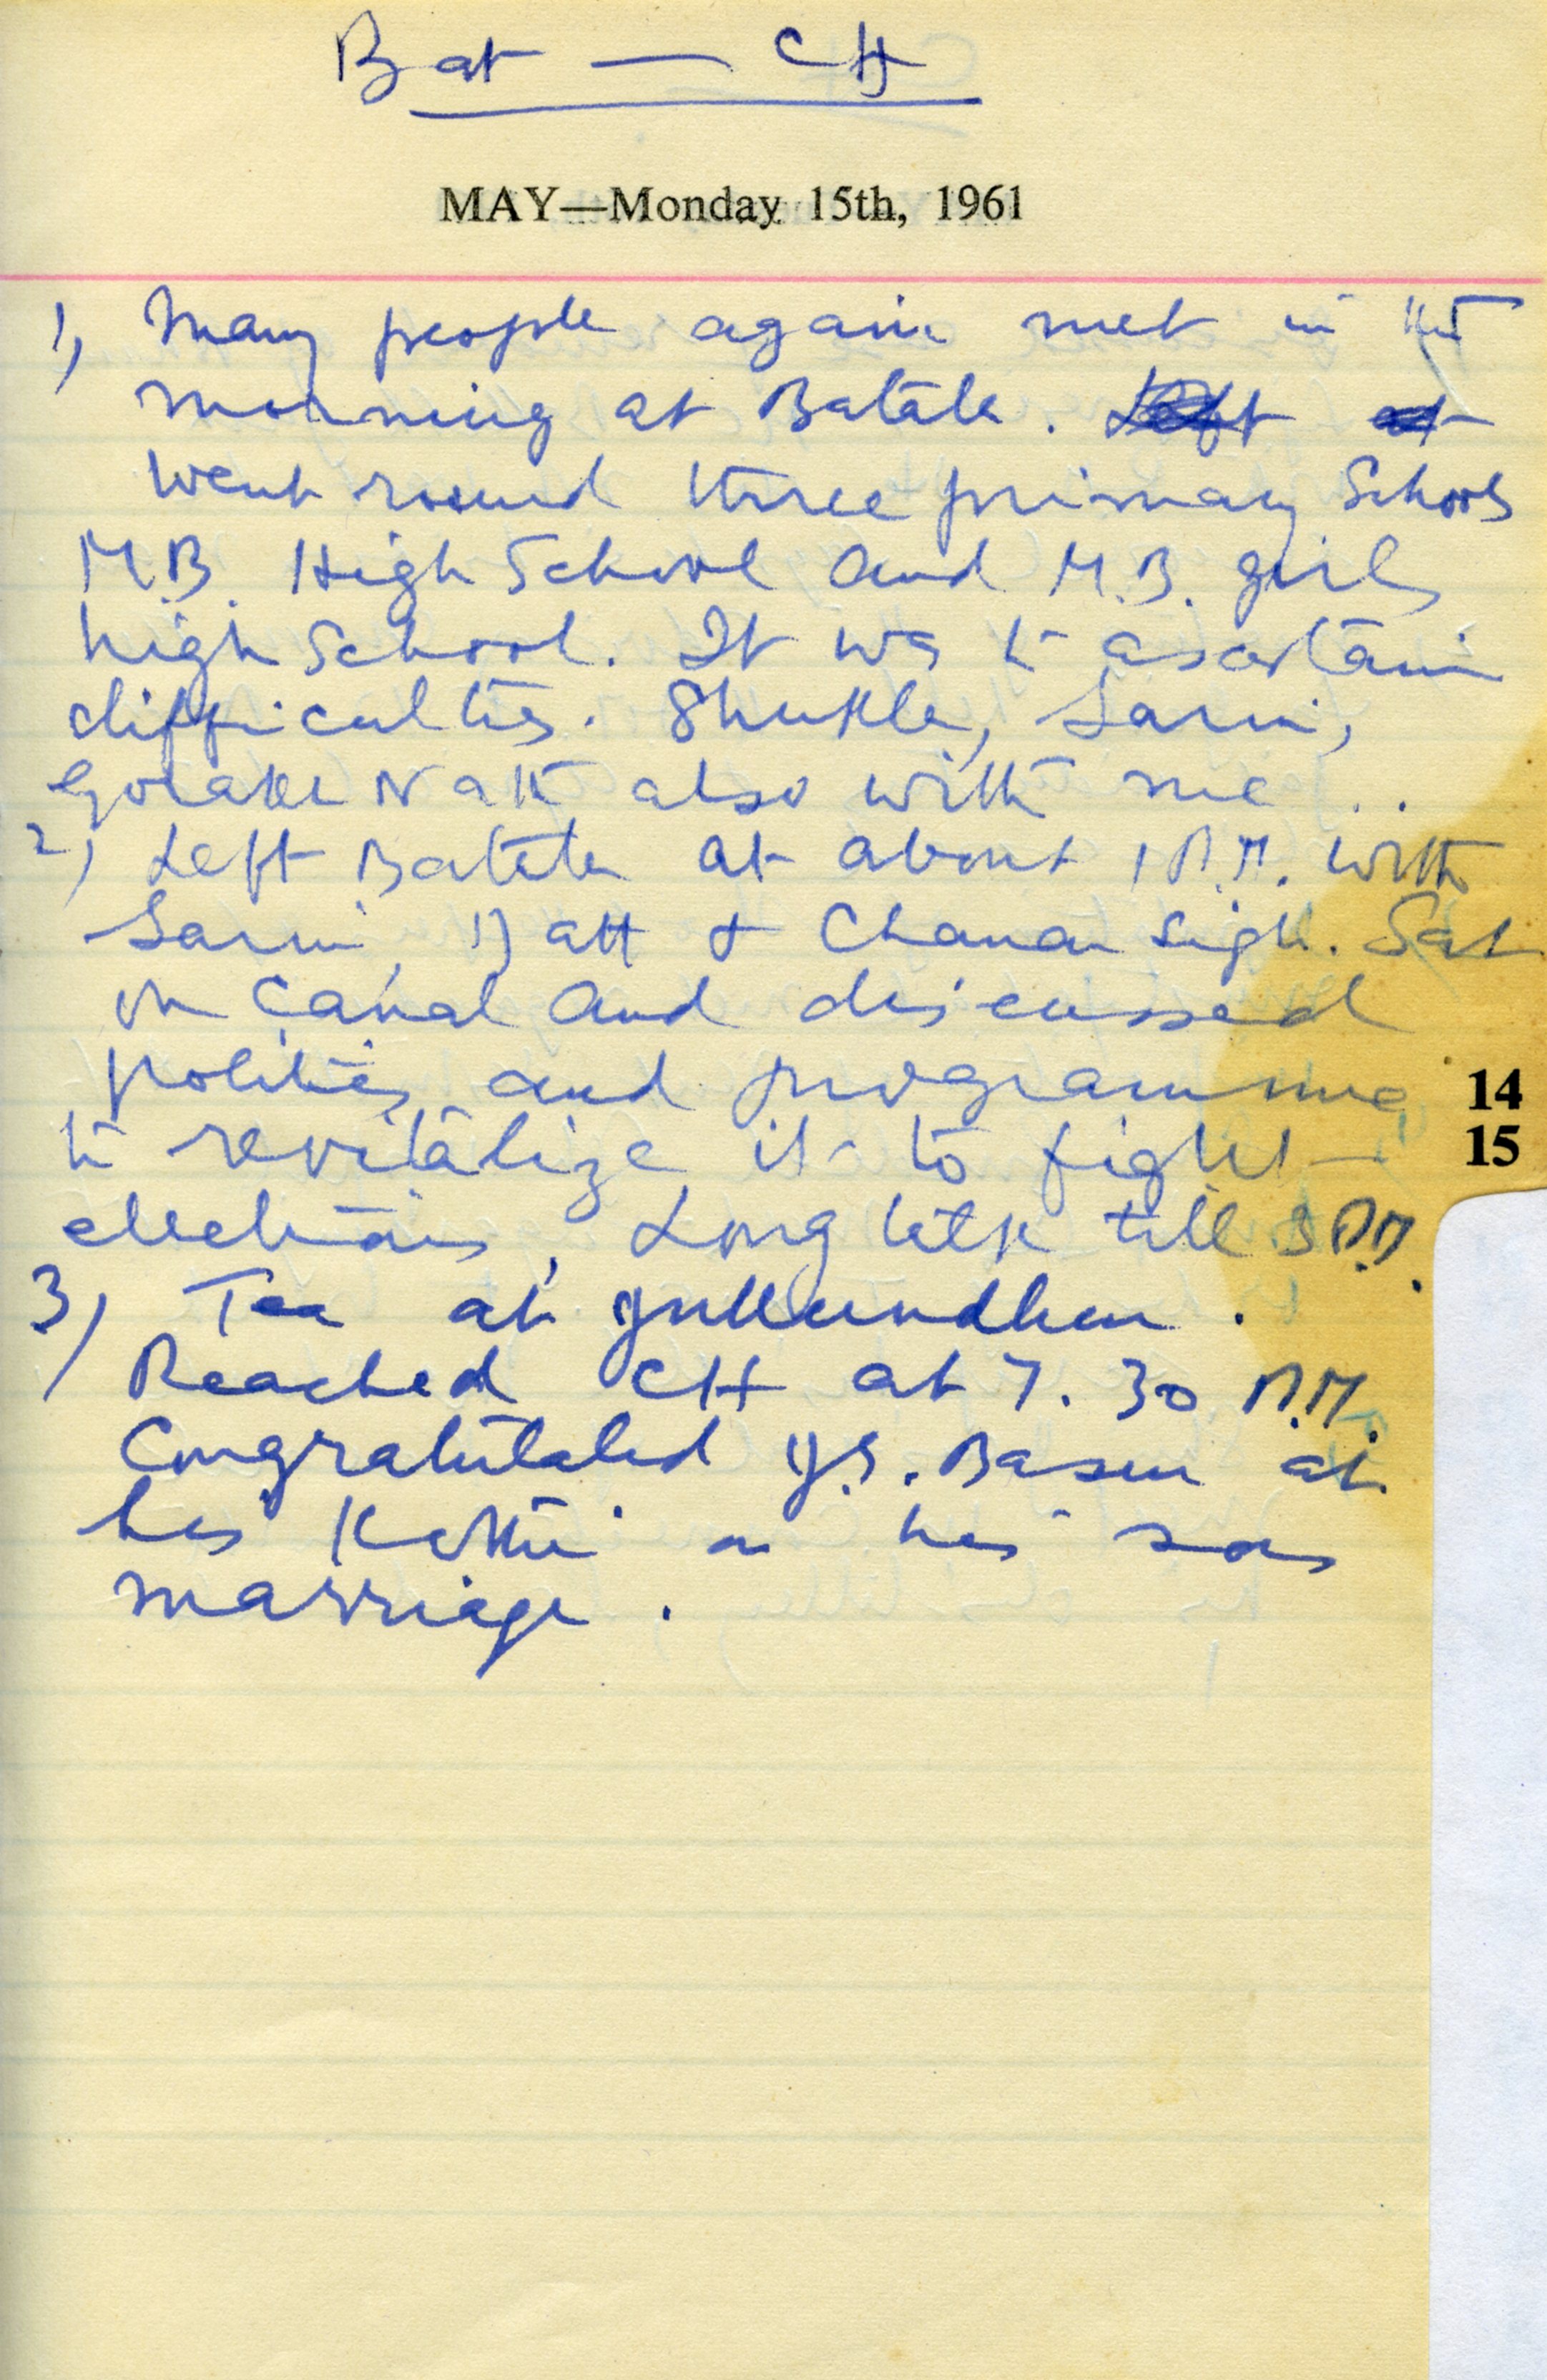 Bat — CH
MAY—Monday 15th, 1961
1) Many people again met in the
morning at Batala. Left at
went round three primary Schools
M.B. High School and M.B. girls
high School. It was to ascertain
difficulties. Shukla, Sarin,
Gorakh Nath also with me ..
2) Left Batala at about 1 P.M. with
Sarin, Datt & Chanan Sigh. Sat
on Canal and discussed
politics and programme
14
to revitalize it to fight
15
elections. Long talk till 3 P.M.
3) Tea at Jullundhur.
Reached CH at 7.30 P.M.
Congratulated J.S. Basur at
his Kothi on his sons
marriage.